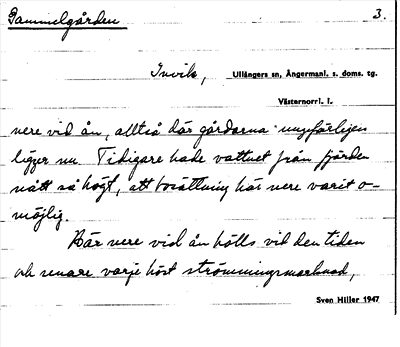 Gammelgården
3.
Invik, Ullångers sn, Ångermanl. s. doms. tg.
Västernorrl. l.
nere vid ån, alltså där gårdarna ungefärligen
ligger nu. Tidigare hade vattnet från fjärden
nått så högt, att bosättning här nere varit o-
möjlig.
Här nere vid ån hölls vid den tiden
och senare varje höst strömmingsmarknad,
Sven Hiller 1947